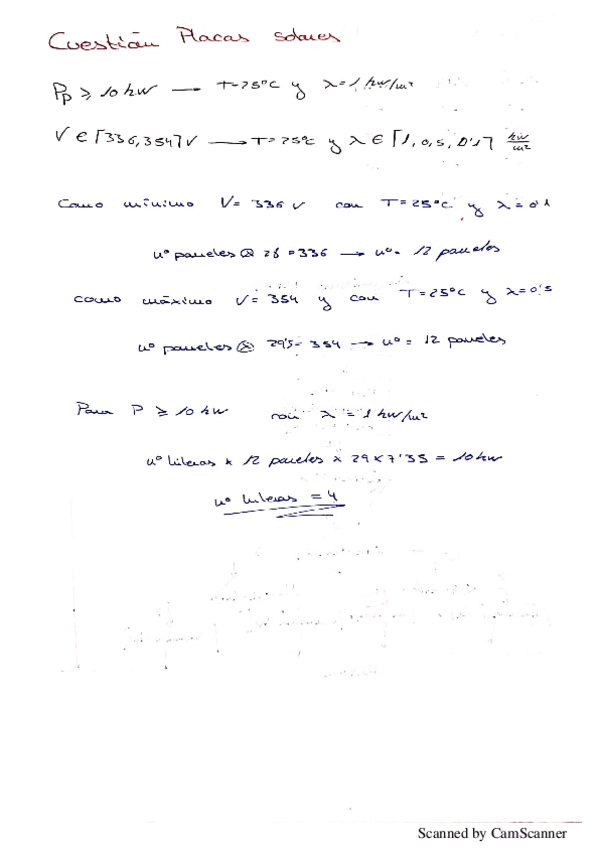 Cuestión Placas solares
Pp ≥ 10 kW → T=25ºC y λ=1 kW/m²
V ∈ [336,354] V → T=25ºC y λ ∈ [1, 0,5, 0'1] kW/m²
Como mínimo V= 336 V con T=25ºC y λ=0'1
nº paneles ⊗ 28 = 336 → nº= 12 paneles
como máximo V= 354 y con T=25ºC y λ=0'5
nº paneles ⊗ 29'5= 354 → nº= 12 paneles
Para P ≥ 10 kW con λ = 1 kW/m²
nº hileras x 12 paneles x 29 x 7'35 = 10 kW
nº hileras = 4
Scanned by CamScanner